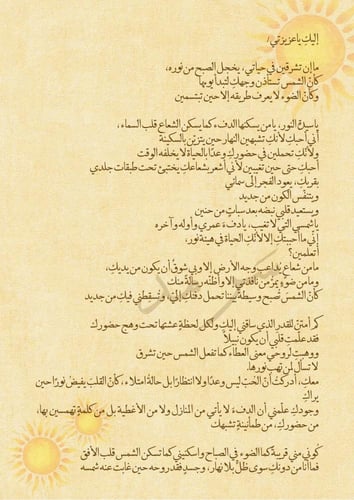 إليكِ ياعزيزتي/
ما إن تشرقين في حياتي، يخجل الصبح من نوره،
كأنّ الشمس تستأذن وجهكِ لتبدأ يومها
وكأنّ الضوء لا يعرف طريقه إلا حين تبتسمين
ياسيدةُ النور، يامن يسكنها الدفء كما يسكن الشعاع قلب السماء،
أني أحبكِ لأنكِ تشبهين النهار حين يتزيّن بالسكينة
ولأنكِ تحملين في حضوركِ وعدًا بالحياة لا يخلفه الوقت
أحبكِ حتى حين تغيبين لأني أشعر بشعاعكِ يختبئ تحت طبقات جلدي
بقربكِ، يعود الفجر إلى سمائي
ويتنفّس الكون من جديد
ويستعيد قلبي نبضه بعد سباتٍ من حنين
ياشمسي التي لا تغيب، يادفءَ عمري وأوله وآخره
إنّي ما أحببتكِ إلا لأنّكِ الحياة في هيئة نور،
أتعلمين؟
مامن شعاعٍ يداعب وجه الأرض إلا وبي شوقٌ أن يكون من يديكِ،
ومامن ضوءٍ يمرّ من نافذتي إلا وأظنّه رسالةً منك
كأنّ الشمس تُصبح وسيطةً بيننا تحمل دفئكِ إليّ، وتُسقطني فيكِ من جديد
كم أمتنّ للقدر الذي ساقني إليكِ ولكل لحظةٍ عشتها تحت وهج حضورك
فقد علّمتِ قلبي أن يكون نبيلًا
ووهبتِ لروحي معنى العطاء كما تفعل الشمس حين تشرق
لا تسأل لمن تهب نورها.
معكِ، أدركتُ أنّ الحُب ليس وعدًا ولا انتظارًا بل حالةُ امتلاء، كأنّ القلب يفيض نورًا حين
يراكِ
وجودكِ علّمني أن الدفء لا يأتي من المنازل ولا من الأغطية بل من كلمةٍ تهمسين بها،
من حضوركِ، من طمأنينةٍ تشبهك
كوني مني قريبةً كما الضوء في الصباح واسكنيني كما تسكن الشمس قلب الأفق
فما أنا من دونكِ سوى ظلٍّ بلا نهار، وجسدٍ فقد روحه حين غابت عنه شمسه